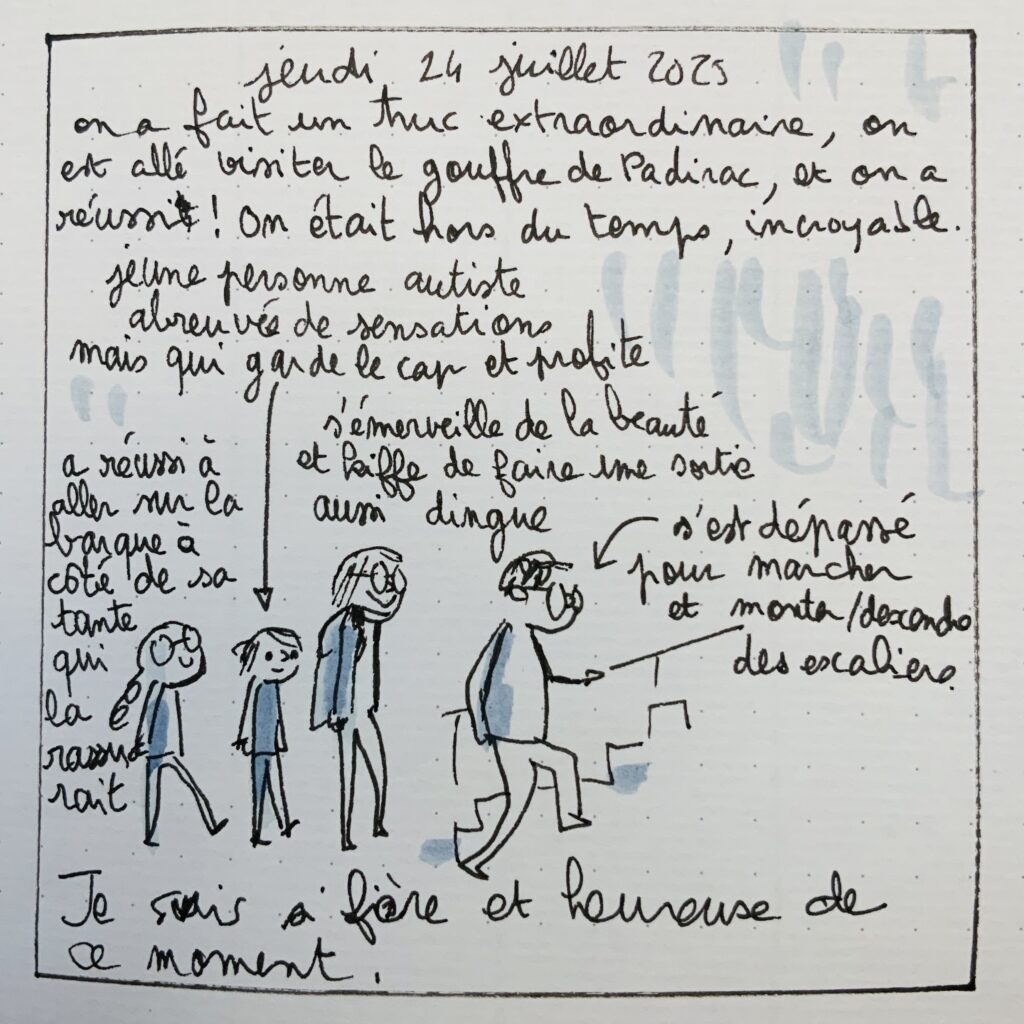 jeudi 24 juillet 2025
on a fait un truc extraordinaire, on
est allé visiter le gouffre de Padirac, et on a
réussi ! On était hors du temps, incroyable.
jeune personne autiste
abreuvée de sensations
mais qui garde le cap et profite
s'émerveille de la beauté
et kiffe de faire une sortie
aussi dingue
a réussi à
aller sur la
barque à
côté de sa
tante
qui
la
rassu
rait
s'est dépassé
pour marcher
et monter/descendre
des escaliers.
Je suis si fière et heureuse de
ce moment.